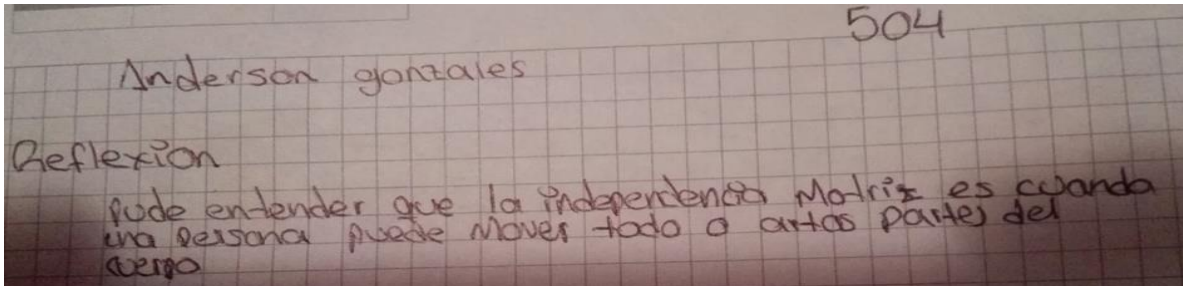 504
Anderson gonzales
Reflexion
pude entender que la independencia Motriz es cuando
una persona puede Mover todo o artas partes del
cuerpo